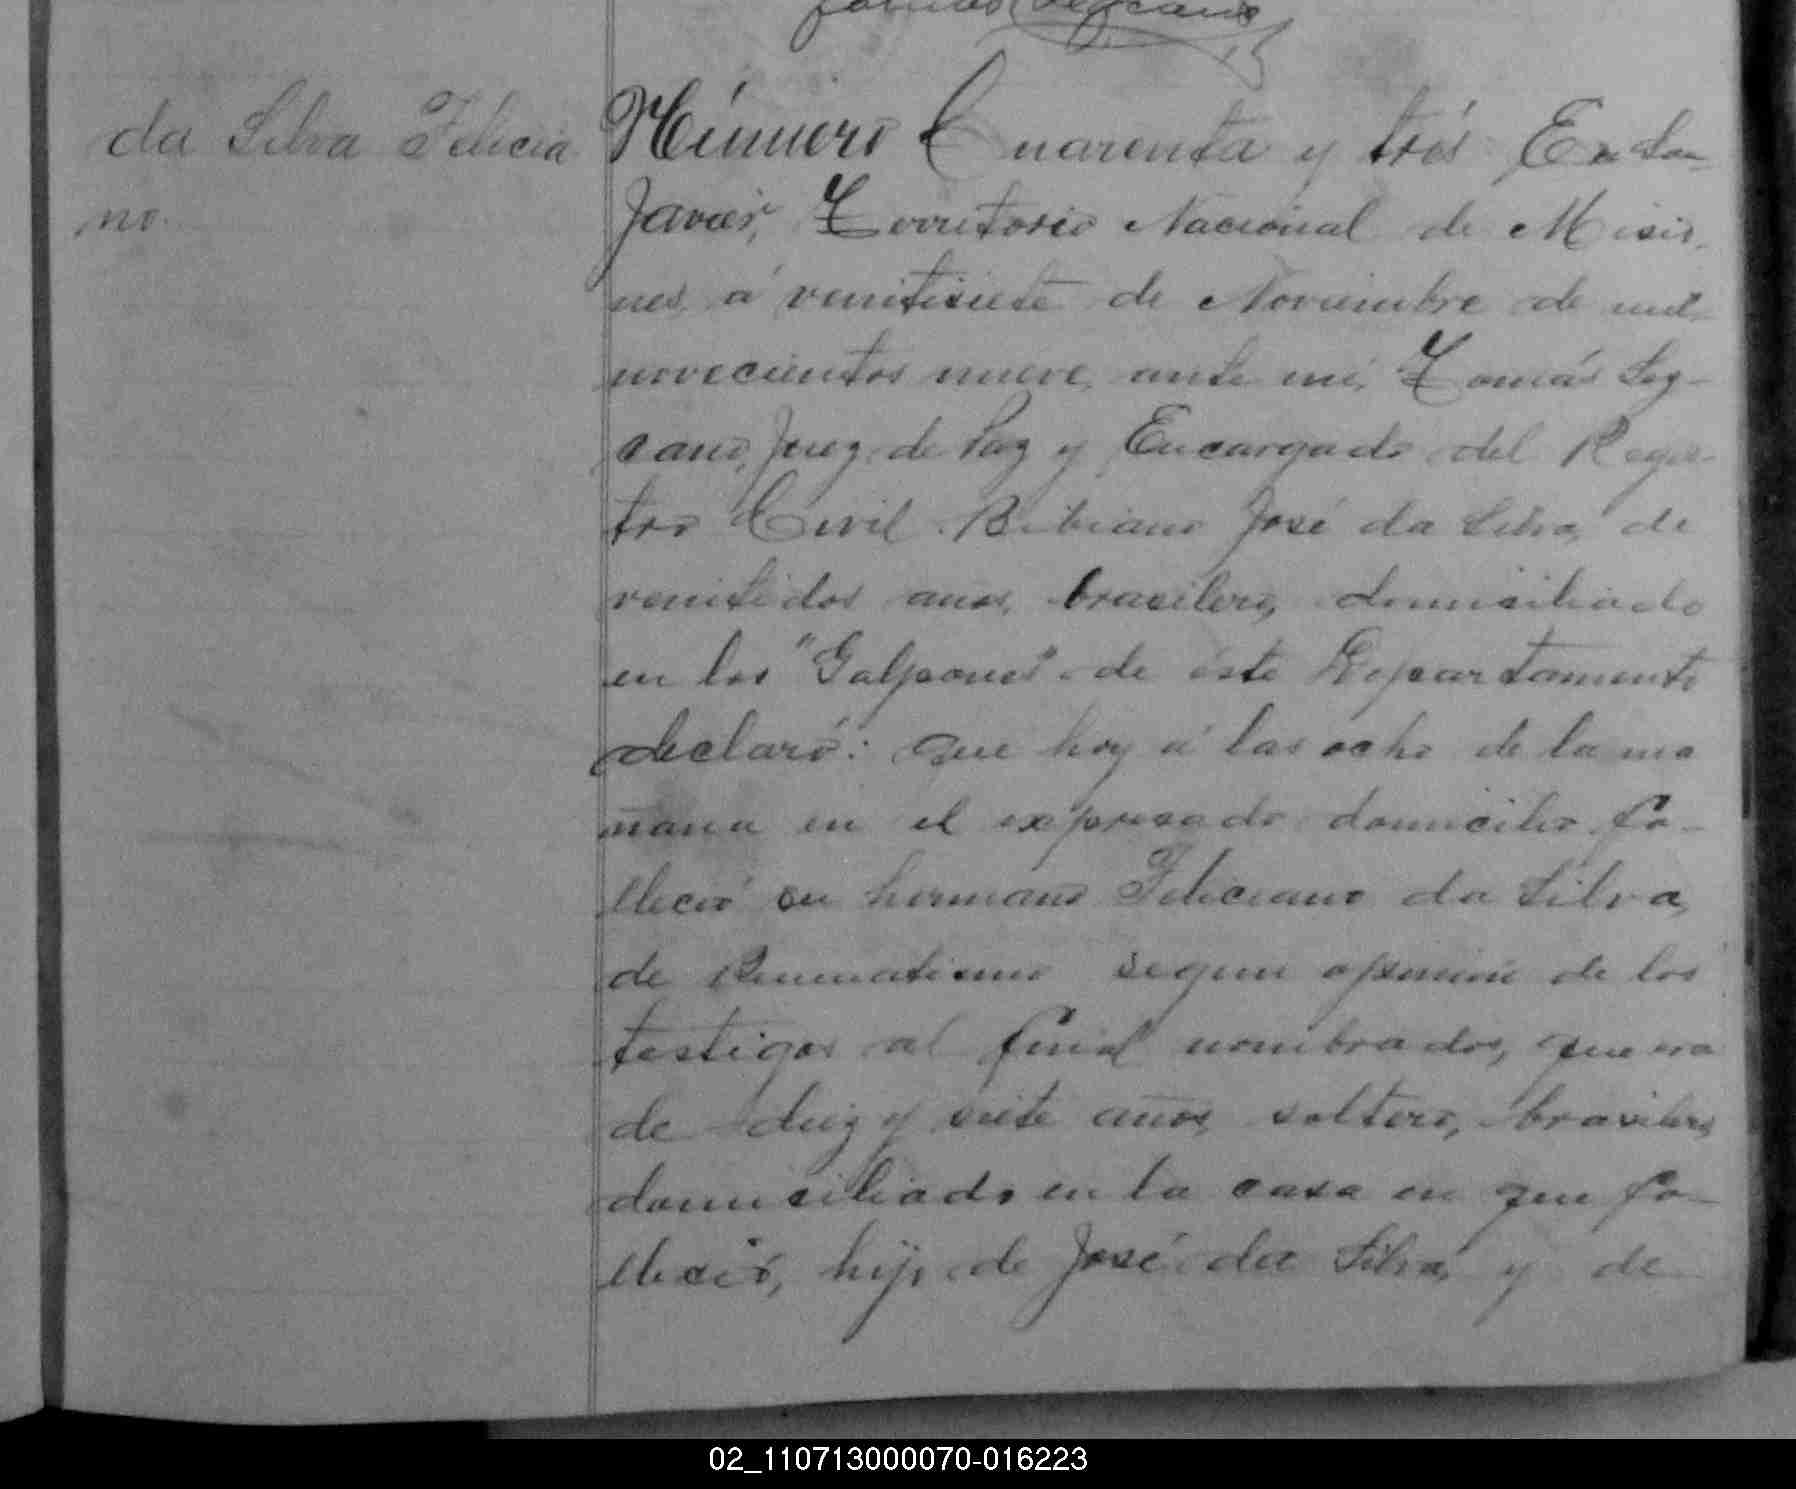 Tomás Legsano
da Silva Felicia
no.
Número Cuarenta y trés En San
Javier, Territorio Nacional de Misio-
nes, á veintisiete de Noviembre de mil
novecientos nueve, ante mi, Tomás Leg-
sano, Juez de Paz y Encargado del Regis-
tro Civil Bibiano José da Silva, de
veintidos años, brasilero, domiciliado
en los "Galpones" de éste Departamento
declaró: Que hoy á las ocho de la ma
ñana en el expresado domicilio fa-
lleció su hermano Feliciano da Silva,
de Reumatismo segun opinión de los
testigos al final nombrados, que era
de diez y siete años, soltero, brasilero
domiciliado en la casa en que fa-
lleció, hijo de José da Silva, y de
02_110713000070-016223